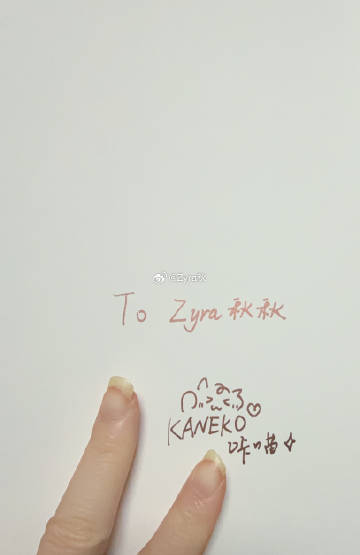 @Zyra秋
To Zyra秋秋
KANEKO
咔喵